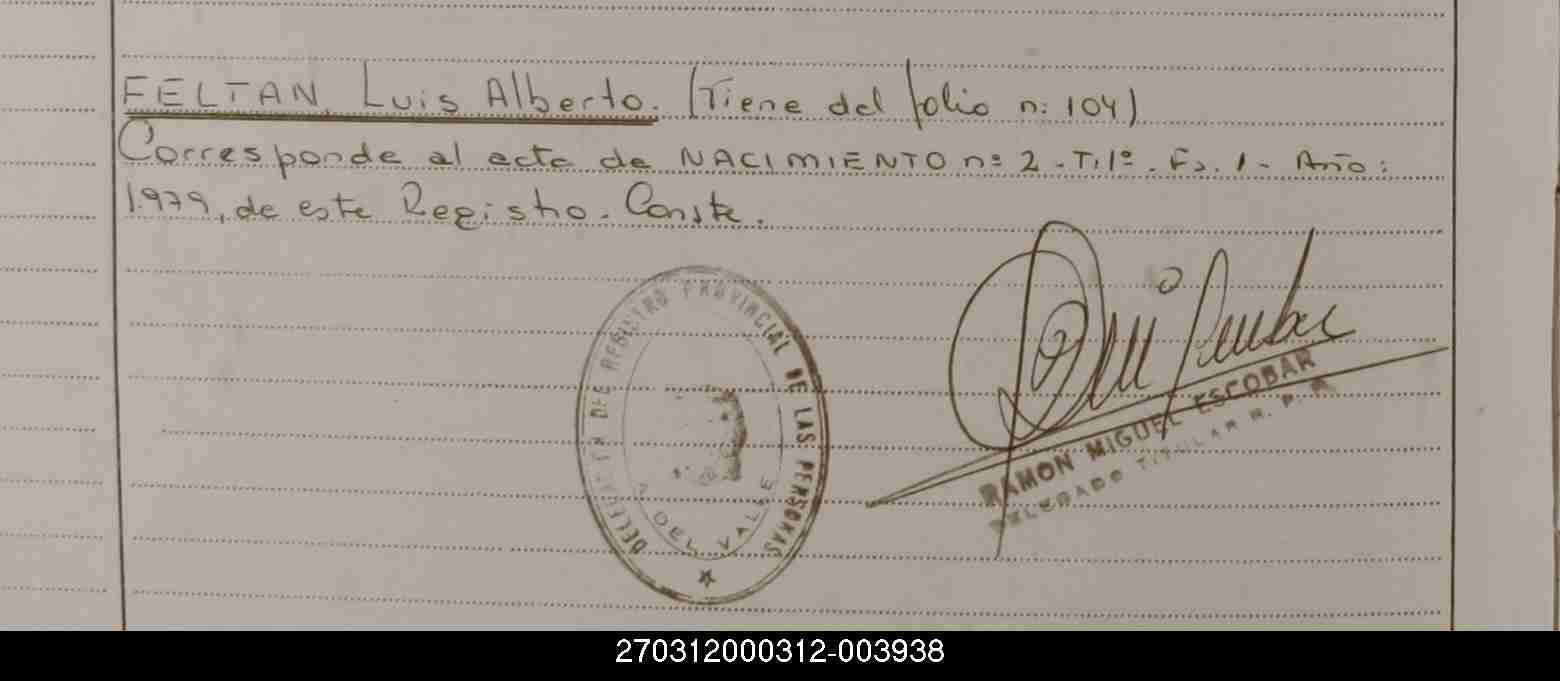 FELTAN, Luis Alberto. (Tiene del folio n: 104)
Corresponde al acta de NACIMIENTO nº 2 - T.1º. Fo. 1 - Año:
1.979, de este Registro. Conste.
DELEGACION DEL REGISTRO PROVINCIAL DE LAS PERSONAS
DEL VALLE
RAMON MIGUEL ESCOBAR
DELEGADO TITULAR R. P. P.
270312000312-003938